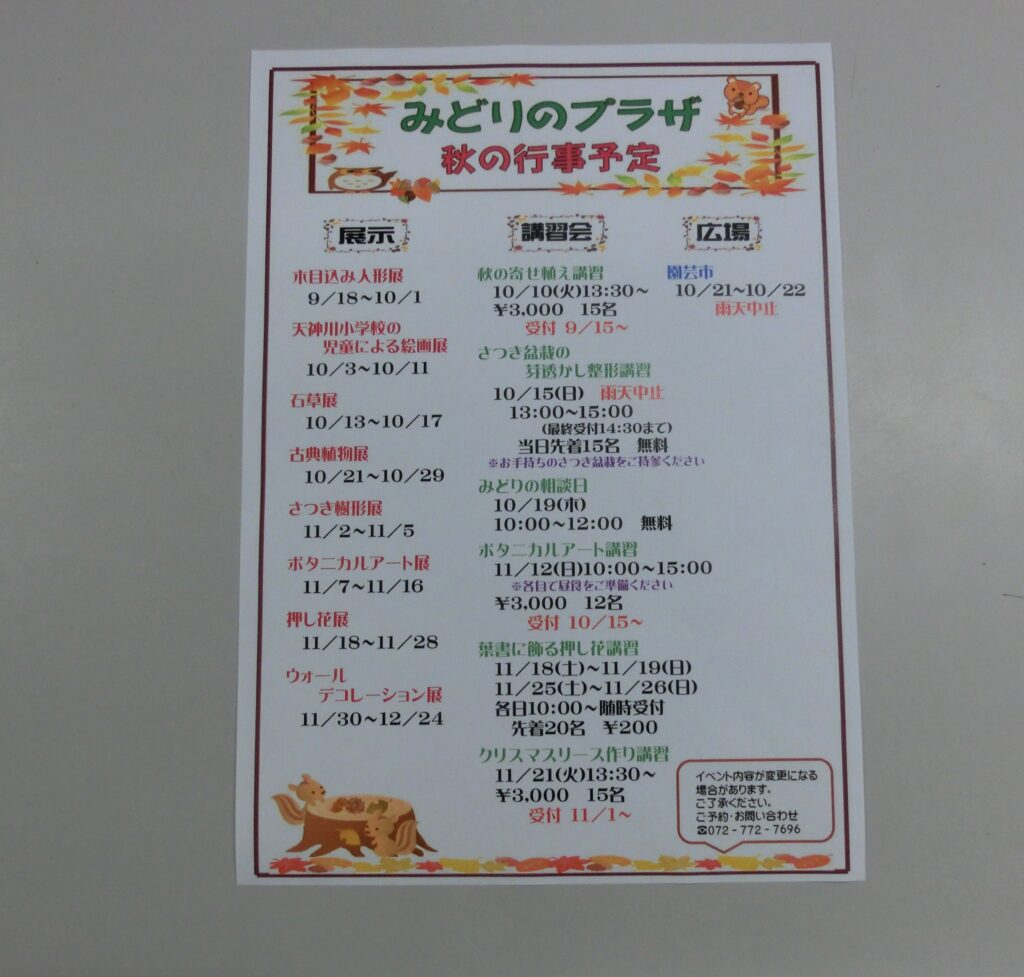 みどりのプラザ
秋の行事予定
展示
木目込み人形展
9/18~10/1
天神川小学校の
児童による絵画展
10/3~10/11
石草展
10/13~10/17
古典植物展
10/21~10/29
さつき樹形展
11/2~11/5
ボタニカルアート展
11/7~11/16
押し花展
11/18~11/28
ウォール
デコレーション展
11/30~12/24
講習会
秋の寄せ植え講習
10/10(火)13:30~
¥3,000 15名
受付 9/15~
さつき盆栽の
芽透かし整形講習
10/15(日) 雨天中止
13:00~15:00
(最終受付14:30まで)
当日先着15名 無料
※お手持ちのさつき盆栽をご持参ください
みどりの相談日
10/19(木)
10:00~12:00 無料
ボタニカルアート講習
11/12(日)10:00~15:00
※各自で昼食をご準備ください
¥3,000 12名
受付 10/15~
葉書に飾る押し花講習
11/18(土)~11/19(日)
11/25(土)~11/26(日)
各日10:00~随時受付
先着20名 ¥200
クリスマスリース作り講習
11/21(火)13:30~
¥3,000 15名
受付 11/1~
広場
園芸市
10/21~10/22
雨天中止
イベント内容が変更になる
場合があります。
ご了承ください。
ご予約・お問い合わせ
☎072-772-7696